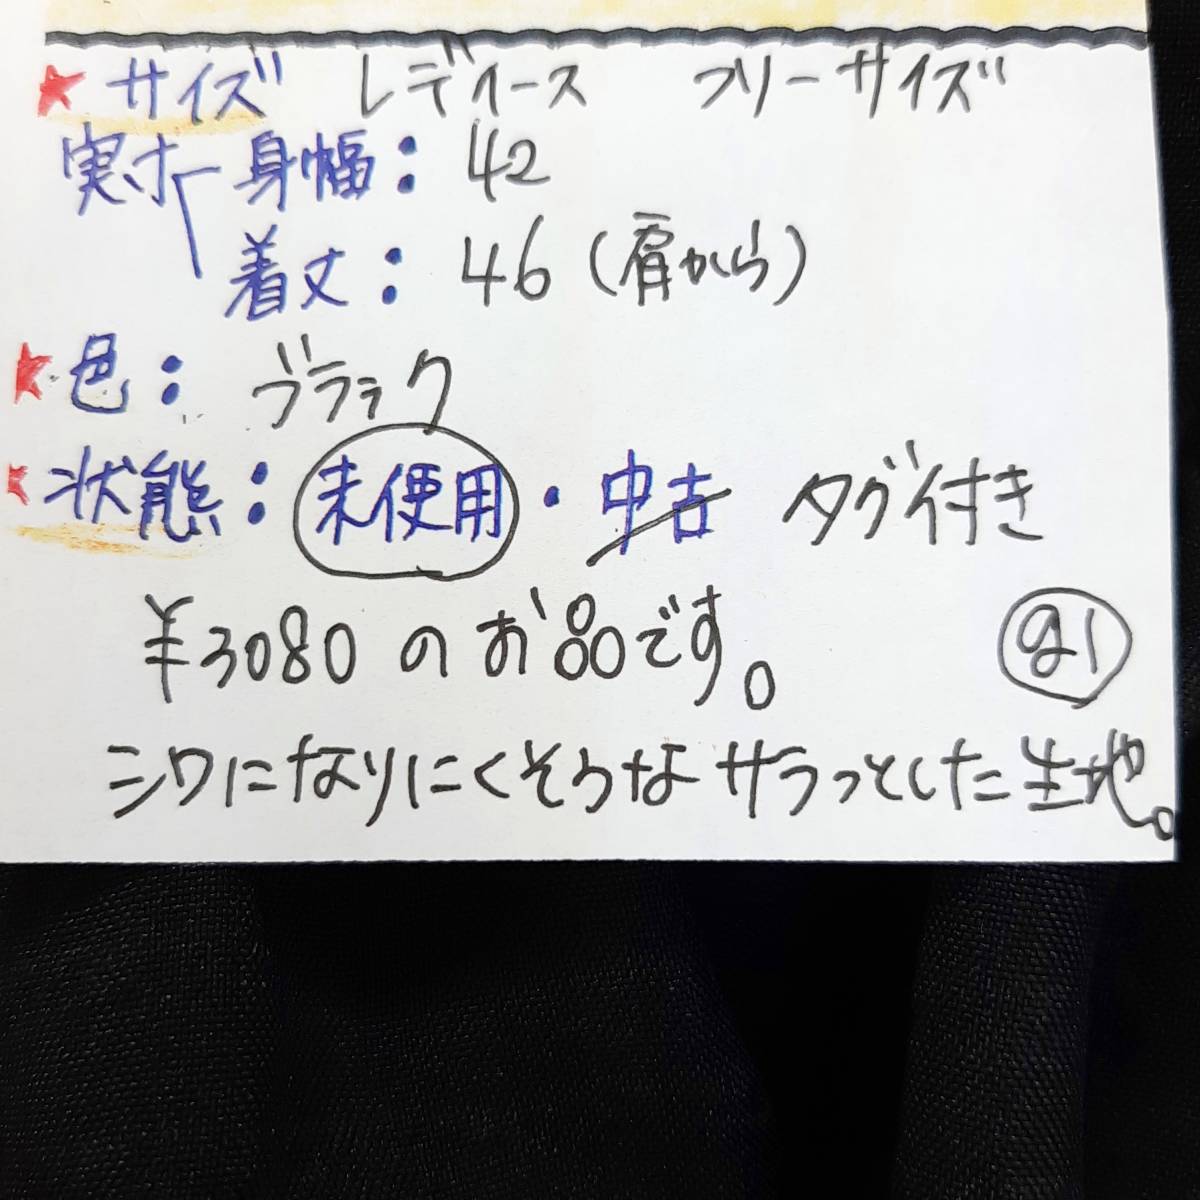 ★ サイズ レディース フリーサイズ
実寸 身幅：42
着丈：46（肩から）
★色：ブラック
★状態：未使用・中古 タグ付き
¥3080のお品です。
シワになりにくそうなサラっとした生地。